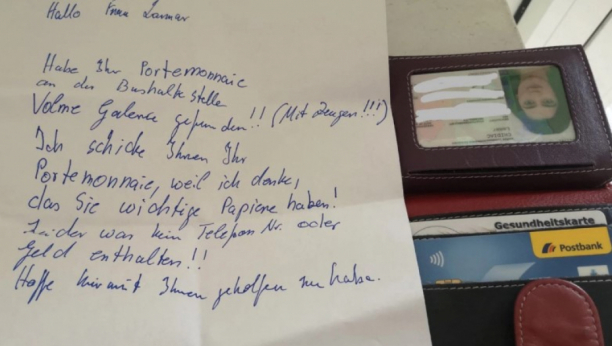 Hallo Frau
Habe Ihr Portemonnaie
an der Bushaltestelle
Volme Galerie gefunden!! (Mit Zeugen!!!)
Ich schicke Ihnen Ihr
Portemonnaie, weil ich denke,
das Sie wichtige Papiere haben!
Leider war kein Telefon Nr. oder
Geld enthalten!!
Hoffe hiermit Ihnen geholfen zu habe.
Gesundheitskarte
Postbank